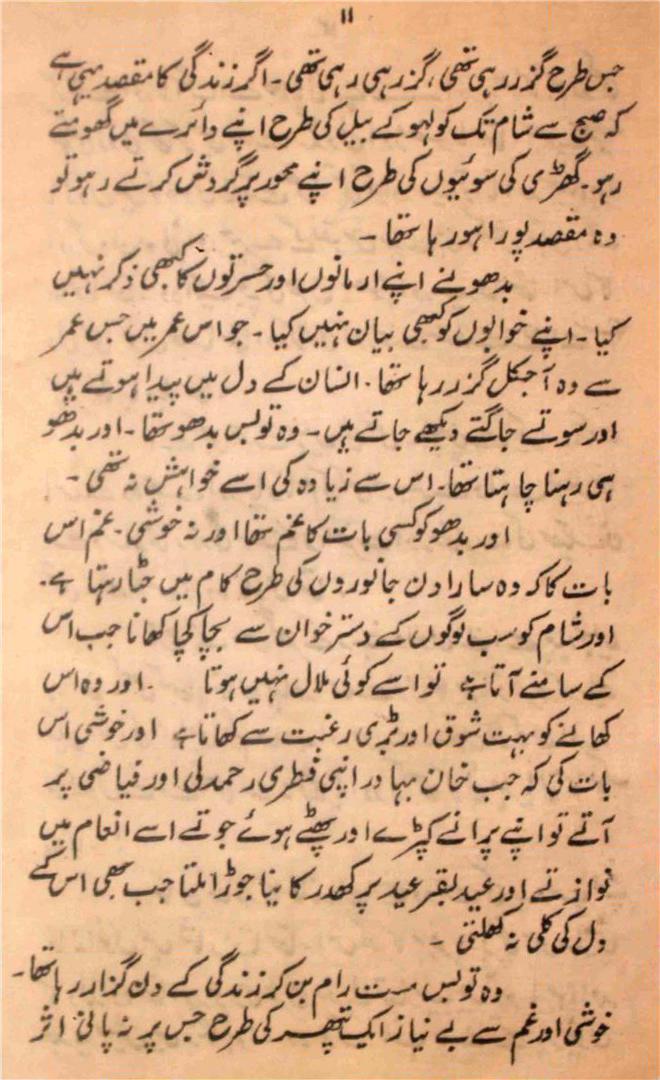 ۱۱
جس طرح گزر رہی تھی، گزر رہی رہی تھی۔ اگر زندگی کا مقصد یہی ہے
کہ صبح سے شام تک کولہو کے بیل کی طرح اپنے دائرے میں گھومتے
رہو۔ گھڑی کی سوئیوں کی طرح اپنے محور پر گردش کرتے رہو تو
وہ مقصد پورا ہو رہا تھا۔
بدھو نے اپنے ارمانوں اور حسرتوں کا کبھی ذکر نہیں
کیا۔ اپنے خوابوں کو کبھی بیان نہیں کیا۔ جو اس عمر میں جس عمر
سے وہ آجکل گزر رہا تھا۔ انسان کے دل میں پیدا ہوتے ہیں
اور سوتے جاگتے دیکھے جاتے ہیں۔ وہ تو بس بدھو تھا۔ اور بدھو
ہی رہنا چاہتا تھا۔ اس سے زیادہ کی اسے خواہش نہ تھی۔
اور بدھو کو کسی بات کا غم تھا اور نہ خوشی۔ غم اس
بات کا کہ وہ سارا دن جانوروں کی طرح کام میں جٹا رہتا ہے۔
اور شام کو سب لوگوں کے دستر خوان سے بچا کچا کھانا جب اس
کے سامنے آتا ہے تو اسے کوئی ملال نہیں ہوتا ۔ اور وہ اس
کھانے کو بہت شوق اور بڑی رغبت سے کھاتا ہے اور خوشی اس
بات کی کہ جب خان بہادر اپنی فطری رحمدلی اور فیاضی پر
آتے تو اپنے پرانے کپڑے اور پھٹے ہوئے جوتے اسے انعام میں
نوازتے اور عید بقر عید پر کھدر کا نیا جوڑا ملتا جب بھی اس کے
دل کی کلی نہ کھلتی ۔
وہ تو بس مست رام بن کر زندگی کے دن گزار رہا تھا۔
خوشی اور غم سے بے نیاز ایک پتھر کی طرح جس پر نہ پانی اثر